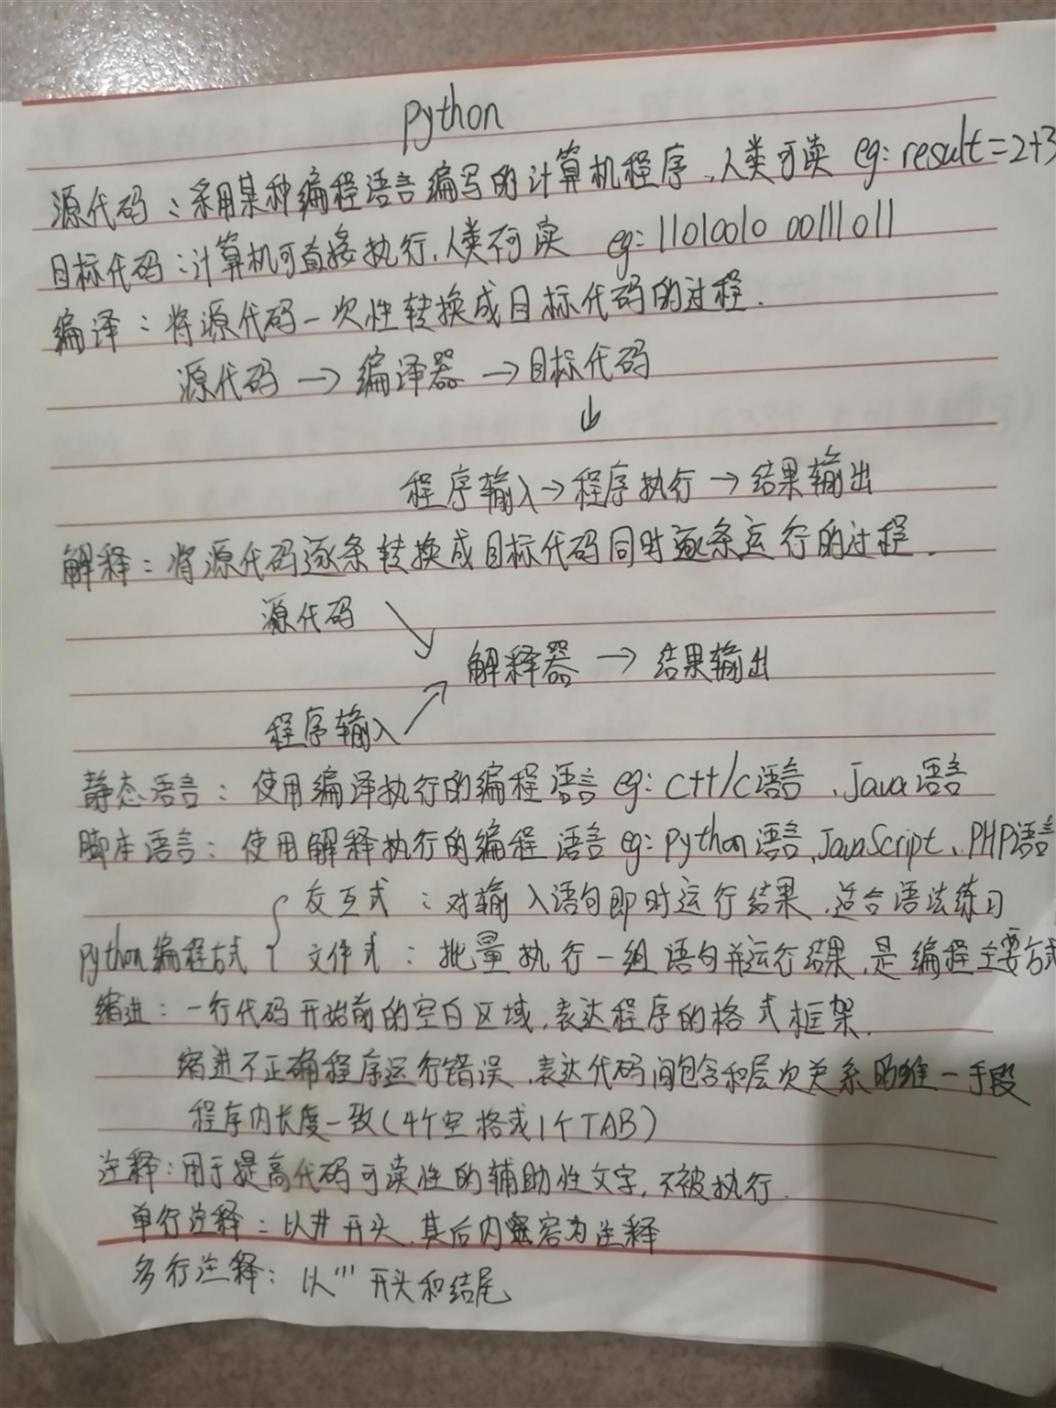 python
源代码：采用某种编程语言编写的计算机程序、人类可读 eg: result=2+3
目标代码：计算机可直接执行，人类不可读 eg: 11010010 00111011
编译：将源代码一次性转换成目标代码的过程.
源代码 → 编译器 → 目标代码
↓
程序输入 → 程序执行 → 结果输出
解释：将源代码逐条转换成目标代码同时逐条运行的过程.
源代码 ↘
解释器 → 结果输出
程序输入 ↗
静态语言：使用编译执行的编程语言 eg: C++/C语言、Java语言
脚本语言：使用解释执行的编程语言 eg: python语言、JavaScript、PHP语言
交互式：对输入语句即时运行结果，适合语法练习
python编程方式 {
文件式：批量执行一组语句并运行结果，是编程主要方式
缩进：一行代码开始前的空白区域，表达程序的格式框架.
缩进不正确程序运行错误，表达代码间包含和层次关系的唯一手段
程序内长度一致(4个空格或1个TAB)
注释：用于提高代码可读性的辅助性文字，不被执行.
单行注释：以#开头，其后内容为注释
多行注释：以'''开头和结尾